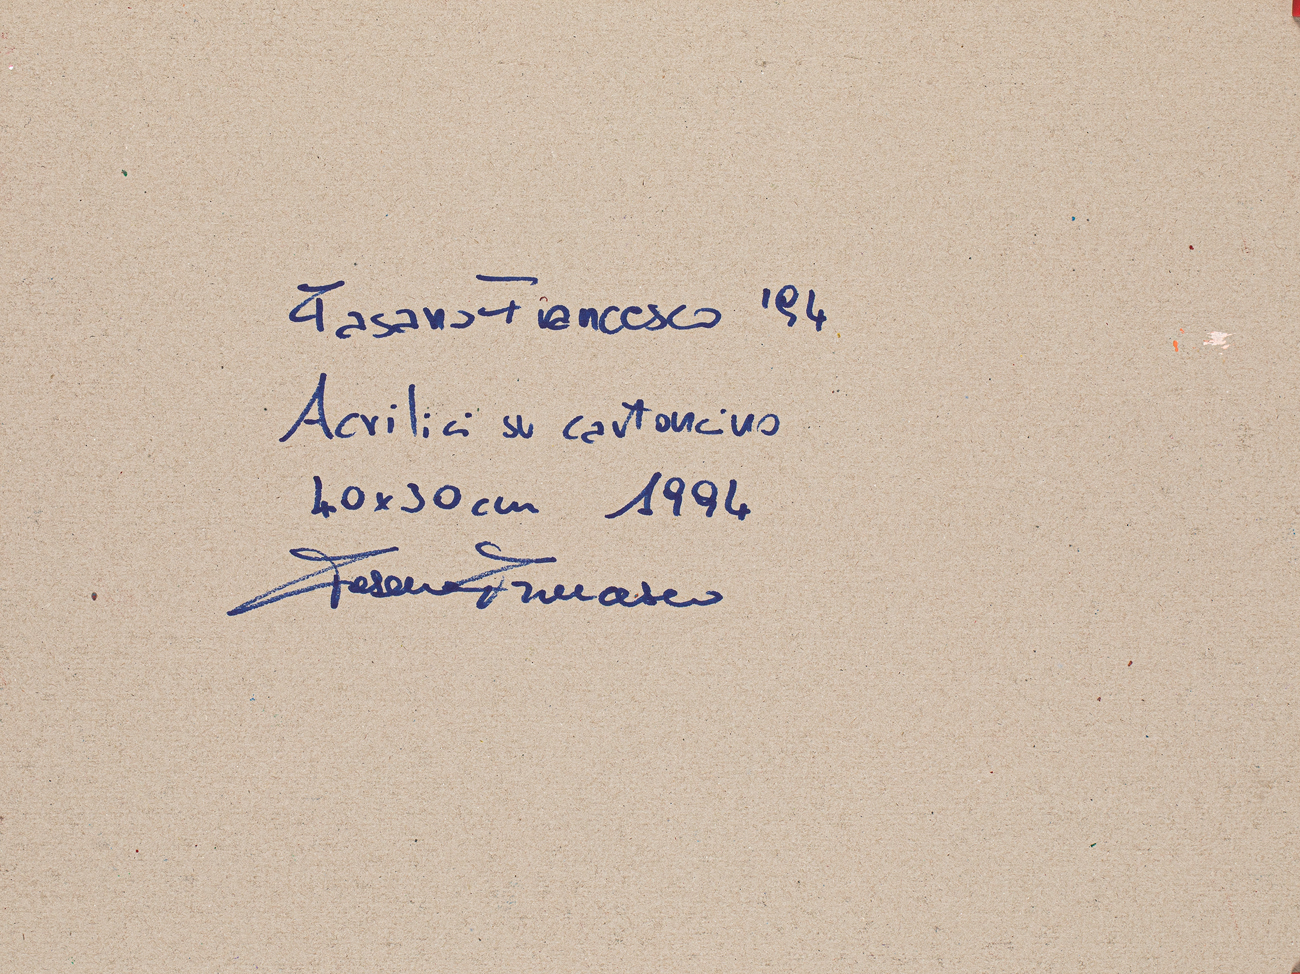 Fasano Francesco '94
Acrilici su cartoncino
40x30 cm 1994
Fasano Francesco